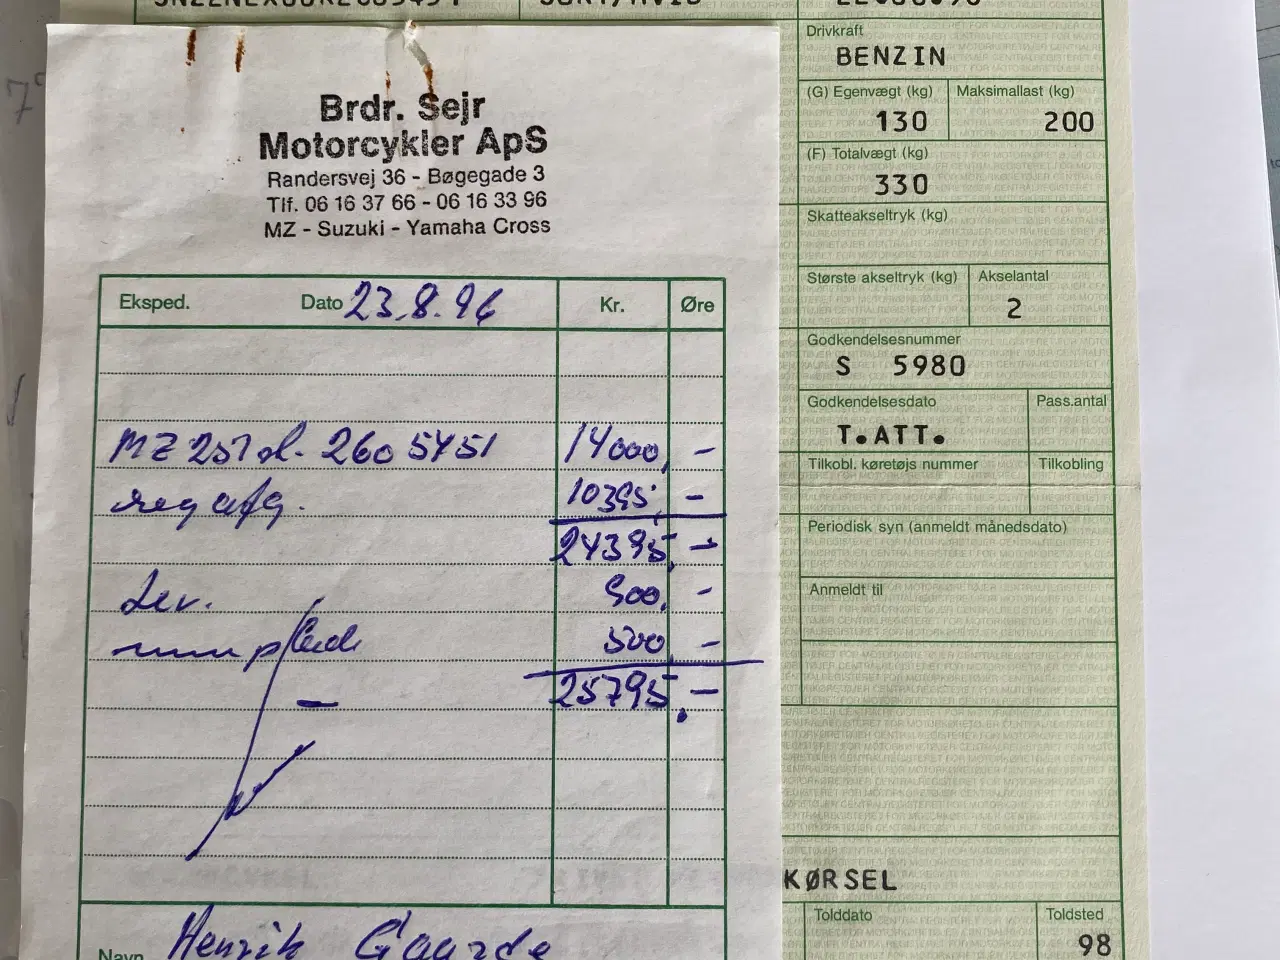 Brdr. Sejr
Motorcykler ApS
Randersvej 36 - Bøgegade 3
Tlf. 06 16 37 66 - 06 16 33 96
MZ - Suzuki - Yamaha Cross
Eksped. Dato 23.8.96 Kr. Øre
MZ 251 2605451 14000, -
reg afg. 10395, -
24395, -
Lev. 900, -
500 -
25795, -
Navn Henrik Gaarde
Drivkraft
BENZIN
(G) Egenvægt (kg) Maksimallast (kg)
130 200
(F) Totalvægt (kg)
330
Skatteakseltryk (kg)
Største akseltryk (kg) Akselantal
2
Godkendelsesnummer
S 5980
Godkendelsesdato Pass.antal
T.ATT.
Tilkobl. køretøjs nummer Tilkobling
Periodisk syn (anmeldt månedsdato)
Anmeldt til
KØRSEL
Tolddato Toldsted
98